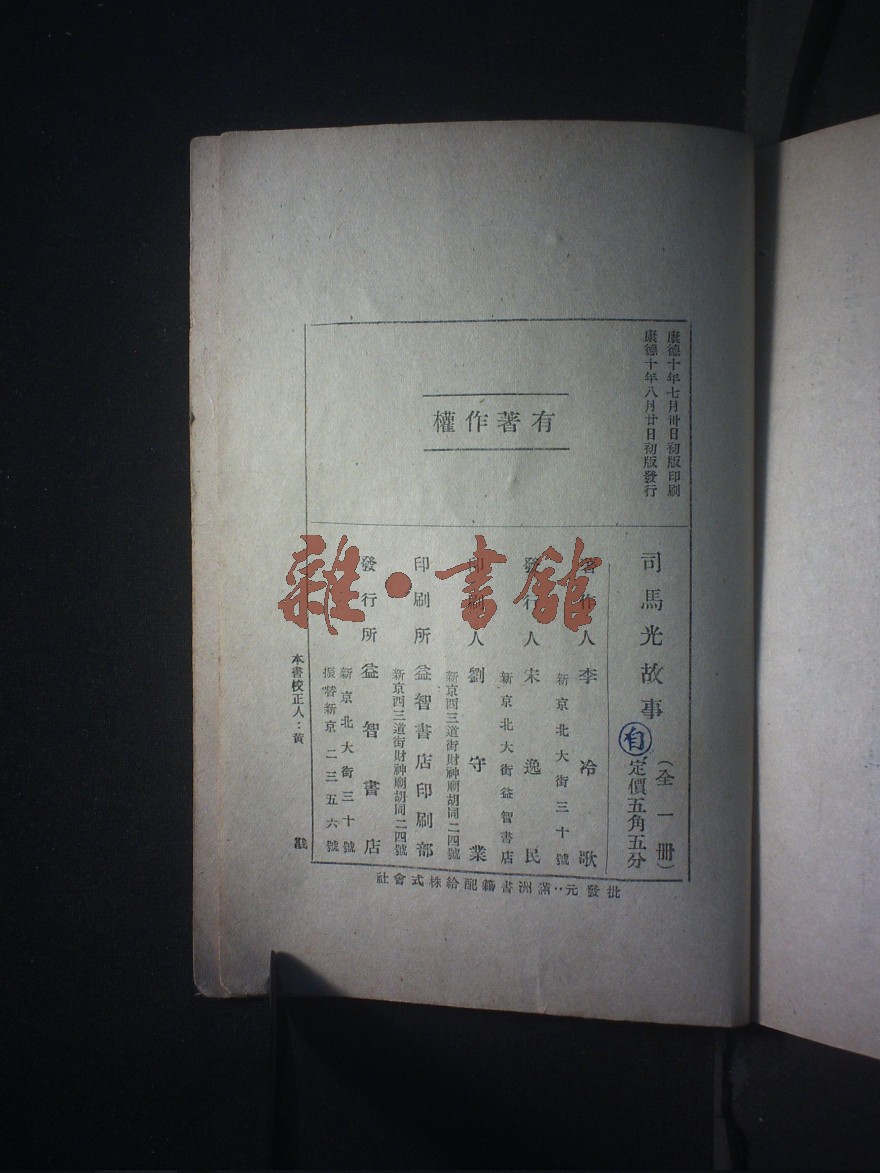 康德十年七月卅日初版印刷
康德十年八月廿日初版發行
有著作權
司馬光故事
(全一冊)
㊒定價五角五分
著作人李冷歌
新京北大街三十號
發行人宋逸民
新京北大街益智書店
印刷人劉守業
新京四三道街財神廟胡同二四號
印刷所益智書店印刷部
新京四三道街財神廟胡同二四號
發行所益智書店
新京北大街三十號
振替新京二三五六號
本書校正人：黃
批發元：滿洲書籍配給株式會社
雜·書館